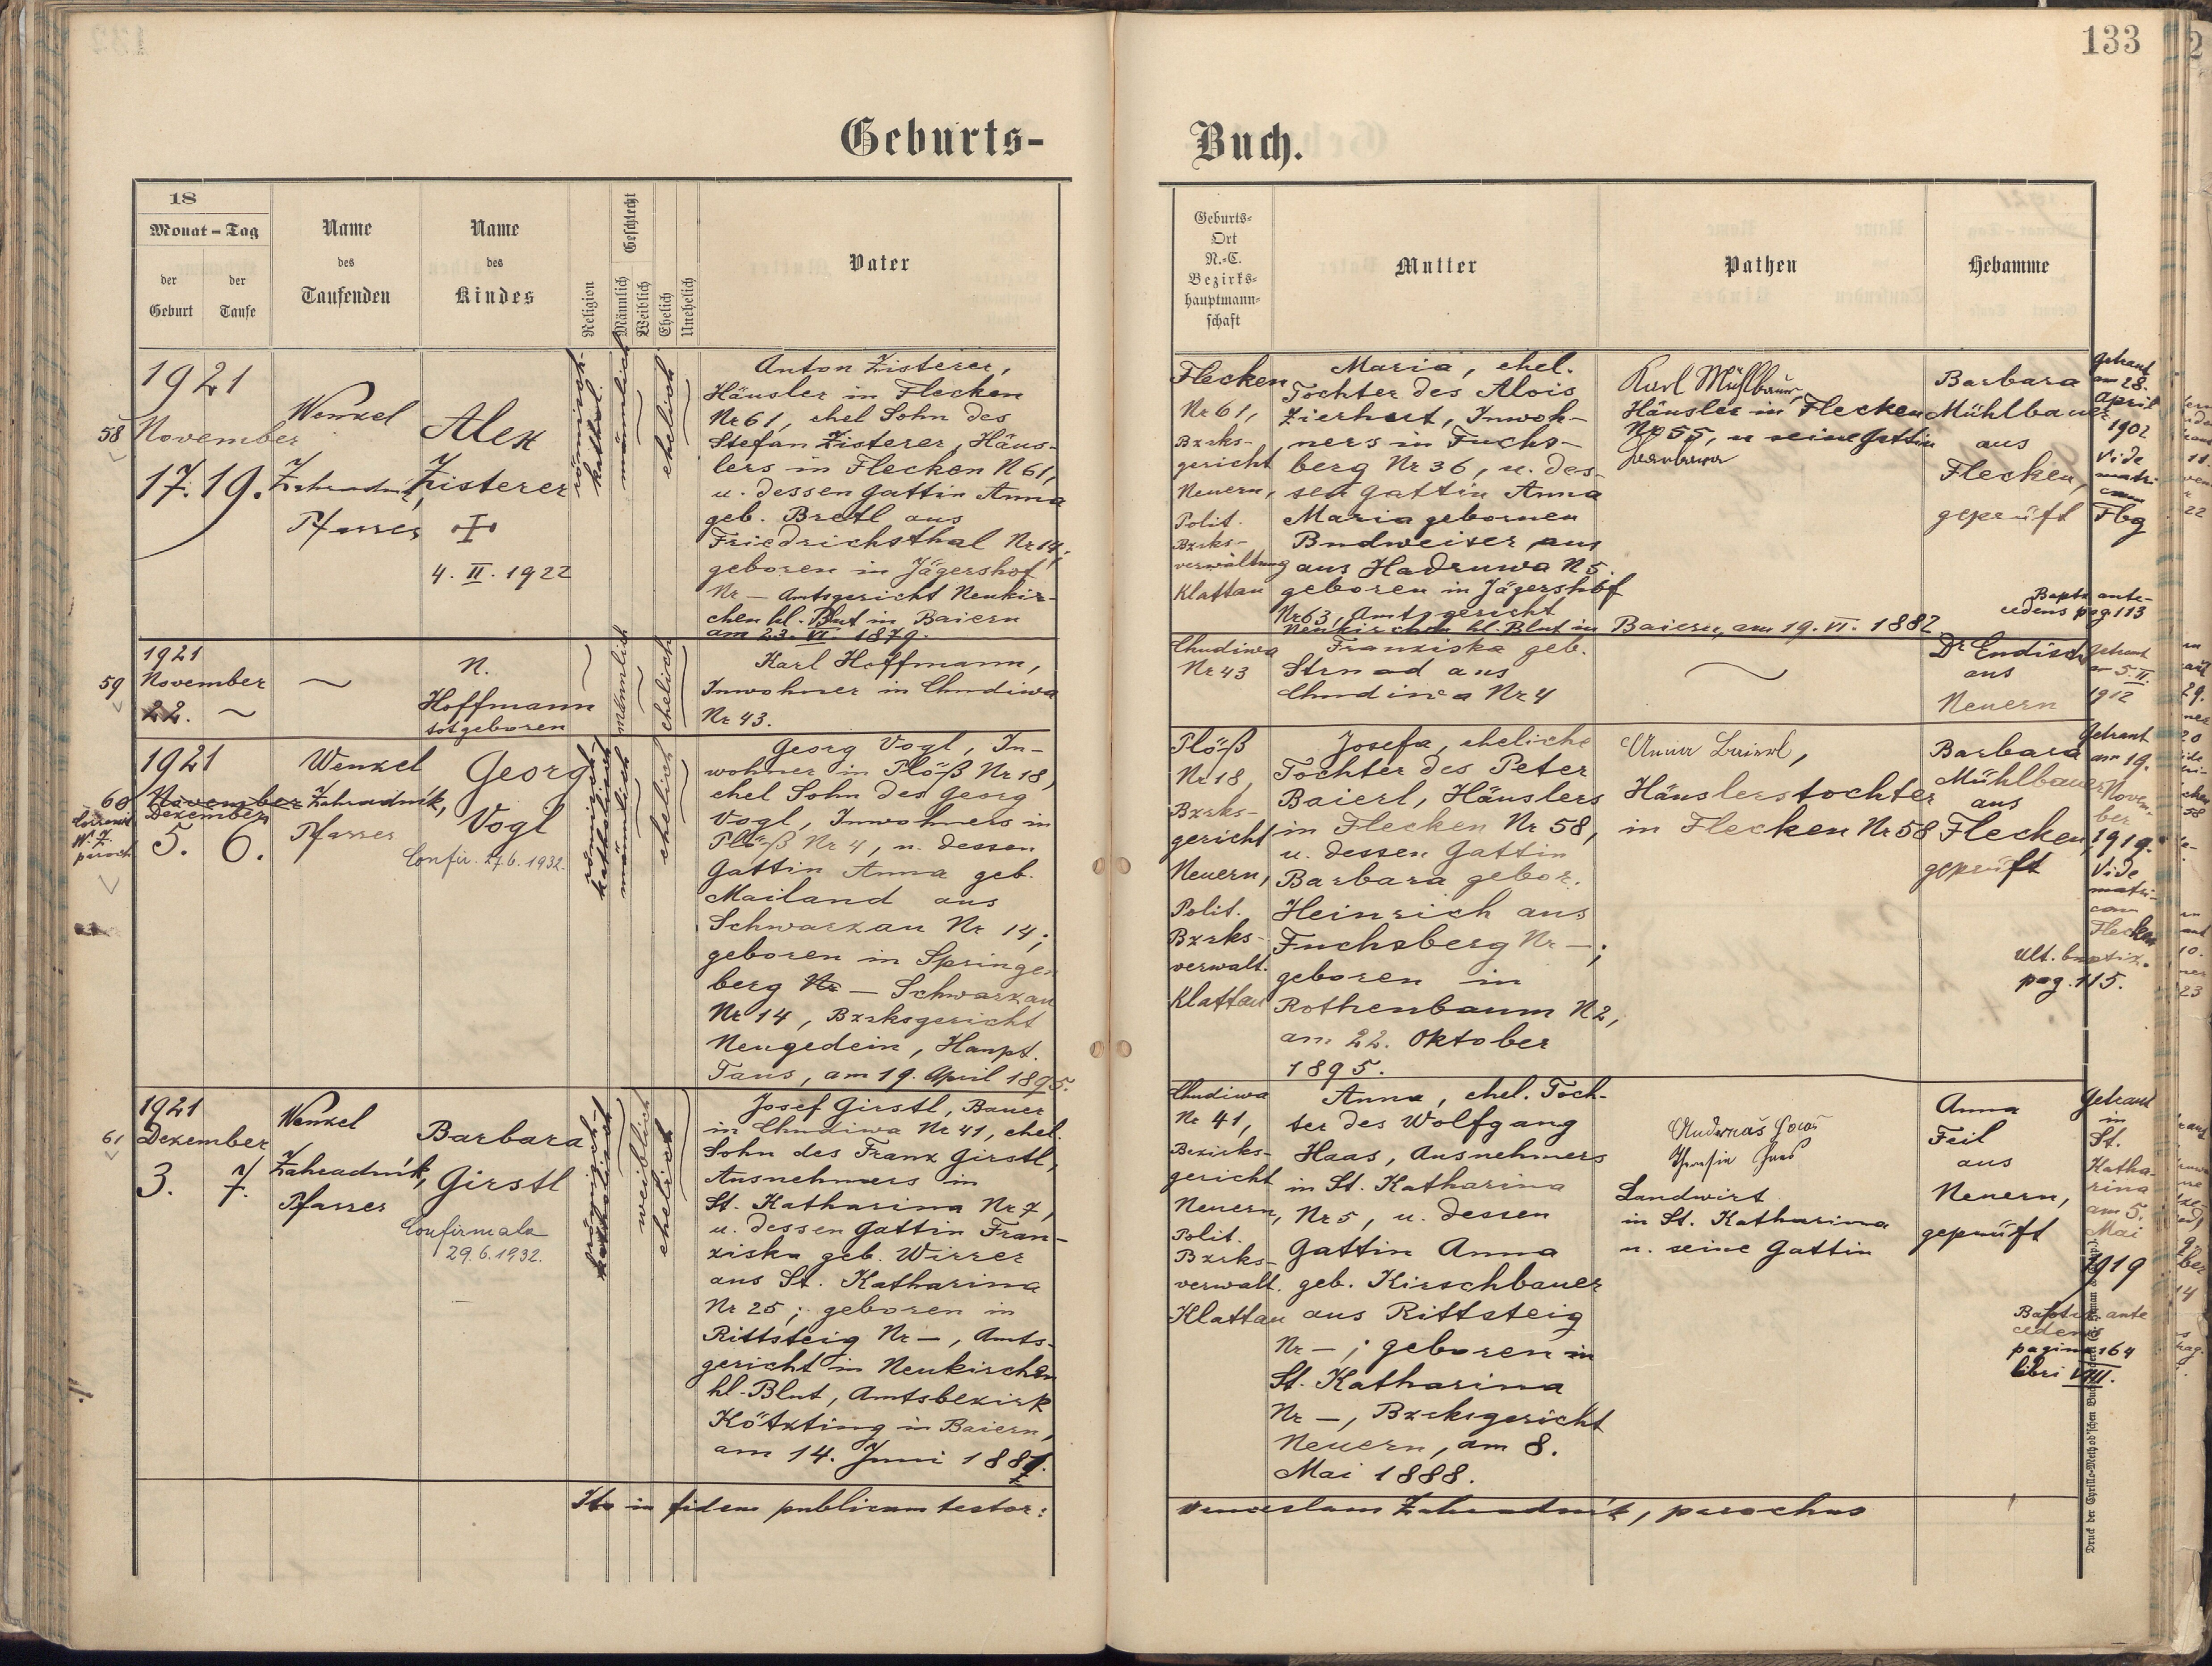 133
Geburts-
Buch.
18
Monat - Tag
der Geburt
der Taufe
Name des Taufenden
Name des Kindes
Religion
Geschlecht
Männlich
Weiblich
Ehelich
Unehelich
Vater
Geburts-
Ort
N.-C.
Bezirks-
hauptmann-
schaft
Mutter
Pathen
Hebamme
58
1921
November
17. 19.
Wenzel
Zahradník,
Pfarrer
Alex
Zisterer
4. II. 1922
römisch-
kathol.
männlich
ehelich
Anton Zisterer,
Häusler in Flecken
Nr 61, ehel Sohn des
Stefan Zisterer, Häus-
lers in Flecken N 61,
u. dessen Gattin Anna
geb. Bretl aus
Friedrichsthal Nr 14;
geboren in Jägershof
Nr — Amtsgericht Neukir-
chen hl. Blut in Baiern
am 23. VI. 1879.
Flecken
Nr 61,
Bzrks-
gericht
Neuern,
Polit.
Bzrks-
verwaltung
Klattau
Maria, ehel.
Tochter des Alois
Zierhut, Inwoh-
ners in Fuchs-
berg Nr 36, u. des-
sen Gattin Anna
Maria gebornen
Budweiser aus
aus Hadruwa N 5.
geboren in Jägershof
Nr 63, Amtsgericht
Neukirchen hl. Blut in Baiern, am 19. VI. 1882
Karl Mühlbauer,
Häusler in Flecken
Nr 55, u seine Gattin
Barbara
Barbara
Mühlbauer
aus
Flecken,
geprüft
Getraut
am 28.
April
1902
Vide
matri-
cam
Flbg
Bapta ante-
cedens pag 113
59
1921
November
22.
N.
Hoffmann
totgeboren
männlich
ehelich
Karl Hoffmann,
Inwohner in Chudiwa
Nr 43.
Chudiwa
Nr 43
Franziska geb.
Strnad aus
Chudiwa Nr 4
Dr Endisch
aus
Neuern
Getraut
am 5. II.
1912
60
1921
November
Dezember
5. 6.
Wenzel
Zahradník,
Pfarrer
Georg
Vogl
Confir. 27.6.1932.
römisch-
katholisch
männlich
ehelich
Georg Vogl, In-
wohner in Plöß Nr 18,
ehel Sohn des Georg
Vogl, Inwohners in
Plöß Nr 4, u. dessen
Gattin Anna geb.
Mailand aus
Schwarzau Nr 14;
geboren in Springen-
berg Nr — Schwarzau
Nr 14, Bzrksgericht
Neugedein, Haupt.
Taus, am 19. April 1895.
Plöß
Nr 18,
Bzrks-
gericht
Neuern,
Polit.
Bzrks-
verwalt.
Klattau
Josefa, eheliche
Tochter des Peter
Baierl, Häuslers
in Flecken Nr 58,
u. dessen Gattin
Barbara gebor.
Heinrich aus
Fuchsberg Nr —;
geboren in
Rothenbaum N 2,
am 22. Oktober
1895.
Anna Baierl,
Häuslerstochter
in Flecken Nr 58
Barbara
Mühlbauer
aus
Flecken,
geprüft
Getraut
am 19.
Novem-
ber
1919.
Vide
matri-
cam
Flecken
Ult. baptiz.
pag. 115.
61
1921
Dezember
3. 7.
Wenzel
Zahradník,
Pfarrer
Barbara
Girstl
Confirmata
29.6.1932.
römisch-
katholisch
weiblich
ehelich
Josef Girstl, Bauer
in Chudiwa Nr 41, ehel.
Sohn des Franz Girstl,
Ausnehmers in
St. Katharina Nr 7,
u. dessen Gattin Fran-
ziska geb. Wirrer
aus St. Katharina
Nr 25; geboren in
Rittsteig Nr —, Amts-
gericht in Neukirchen
hl. Blut, Amtsbezirk
Kötzting in Baiern,
am 14. Juni 1881.
Chudiwa
Nr 41,
Bezirks-
gericht
Neuern,
Polit.
Bzrks-
verwalt.
Klattau
Anna, ehel. Toch-
ter des Wolfgang
Haas, Ausnehmers
in St. Katharina
Nr 5, u. dessen
Gattin Anna
geb. Kirschbauer
aus Rittsteig
Nr —; geboren in
St. Katharina
Nr —, Bzrksgericht
Neuern, am 8.
Mai 1888.
Theresia Haas
Landwirt
in St. Katharina
u. seine Gattin
Anna
Feil
aus
Neuern,
geprüft
Getraut
in
St.
Katha-
rina
am 5.
Mai
1919
Baptiz. ante
cedens
pagina 164
libri VIII.
Ita in fidem publicam testor:
Venceslaus Zahradník, parochus